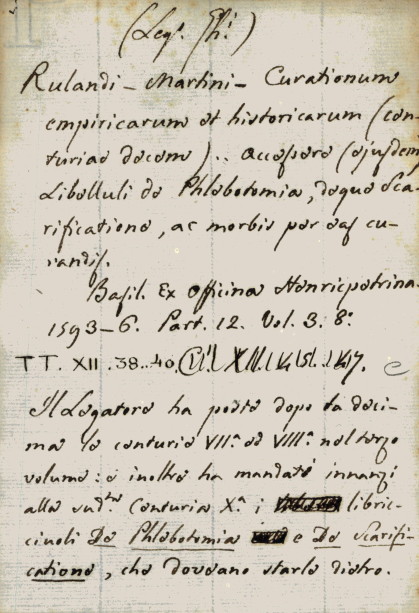 (Leg. Chi.)
Rulandi - Martini - Curationum
empiricarum et historicarum (cen-
turiae decem) .. accessere (ejusdem
Libelluli de Phlebotomia, deque Sca-
rificatione, ac morbis per eas cu-
randis.
Basil. Ex Officina Henricpetrina.
1593-6. Part. 12. Vol. 3. 8.°
TT. XII. 38..40.
Il Legatore ha posto dopo la deci-
ma le centurie VII.a ed VIII.a nel terzo
volume: e inoltre ha mandati innanzi
alla sud.ta Centuria X.a i libric-
ciuoli De Phlebotomia e De Scarifi-
catione, che dovean starle dietro.